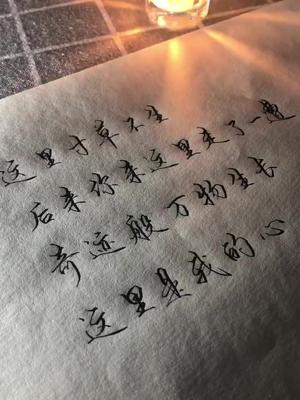 这里寸草不生
后来你来这里走了一遭
奇迹般万物生长
这里是我的心